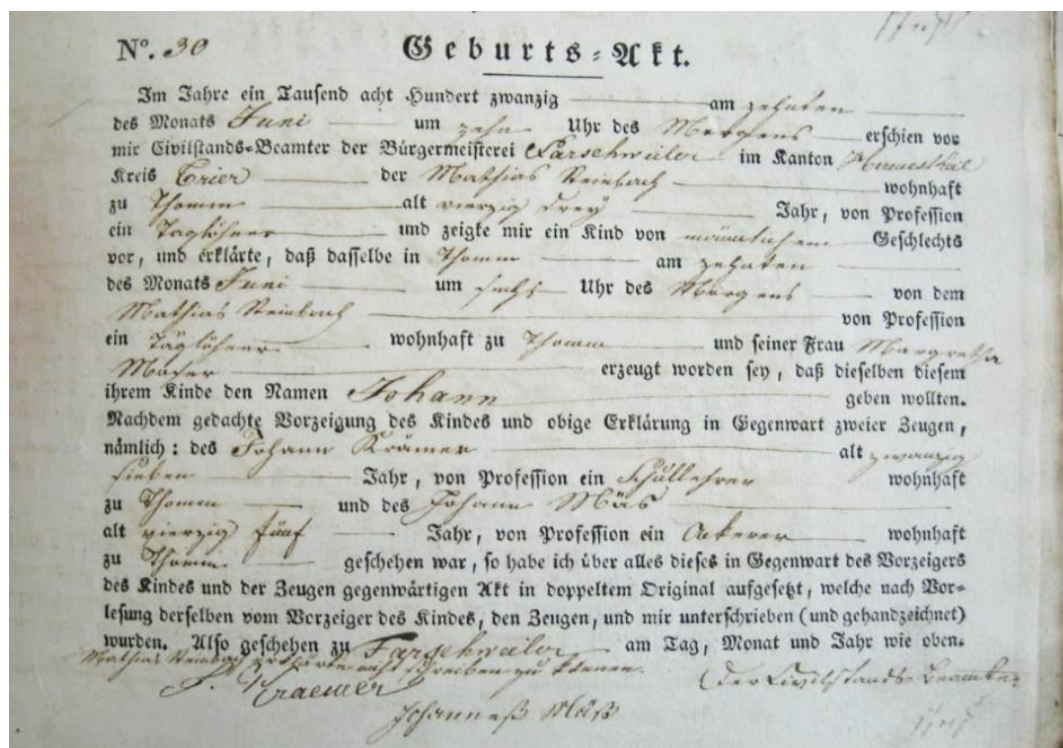 Nº. 30 Geburts=Akt.
Im Jahre ein Tausend acht Hundert zwanzig am zehnten
des Monats Juni um zehn Uhr des Morgens erschien vor
mir Civilstands-Beamter der Bürgermeisterei Farschweiler im Kanton Hermeskeil
Kreis Trier der Mathias Reinbach wohnhaft
zu Thomm alt vierzig drey Jahr, von Profession
ein Taglöhner und zeigte mir ein Kind von männlichem Geschlechts
vor, und erklärte, daß dasselbe in Thomm am zehnten
des Monats Juni um sechs Uhr des Morgens von dem
Mathias Reinbach von Profession
ein Taglöhner wohnhaft zu Thomm und seiner Frau Margretha
erzeugt worden sey, daß dieselben diesem
ihrem Kinde den Namen Johann geben wollten.
Nachdem gedachte Vorzeigung des Kindes und obige Erklärung in Gegenwart zweier Zeugen,
nämlich: des Johann Krämer alt zwanzig
sieben Jahr, von Profession ein Schullehrer wohnhaft
zu Thomm und des Johann Mäs
alt vierzig fünf Jahr, von Profession ein Ackerer wohnhaft
zu Thomm geschehen war, so habe ich über alles dieses in Gegenwart des Vorzeigers
des Kindes und der Zeugen gegenwärtigen Akt in doppeltem Original aufgesetzt, welche nach Vor=
lesung derselben vom Vorzeiger des Kindes, den Zeugen, und mir unterschrieben (und gehandzeichnet)
wurden. Also geschehen zu Farschweiler am Tag, Monat und Jahr wie oben.
Mathias Reinbach erklärte nicht schreiben zu können.
Kraemer Der Civilstands-Beamte
Johanneß Mäß